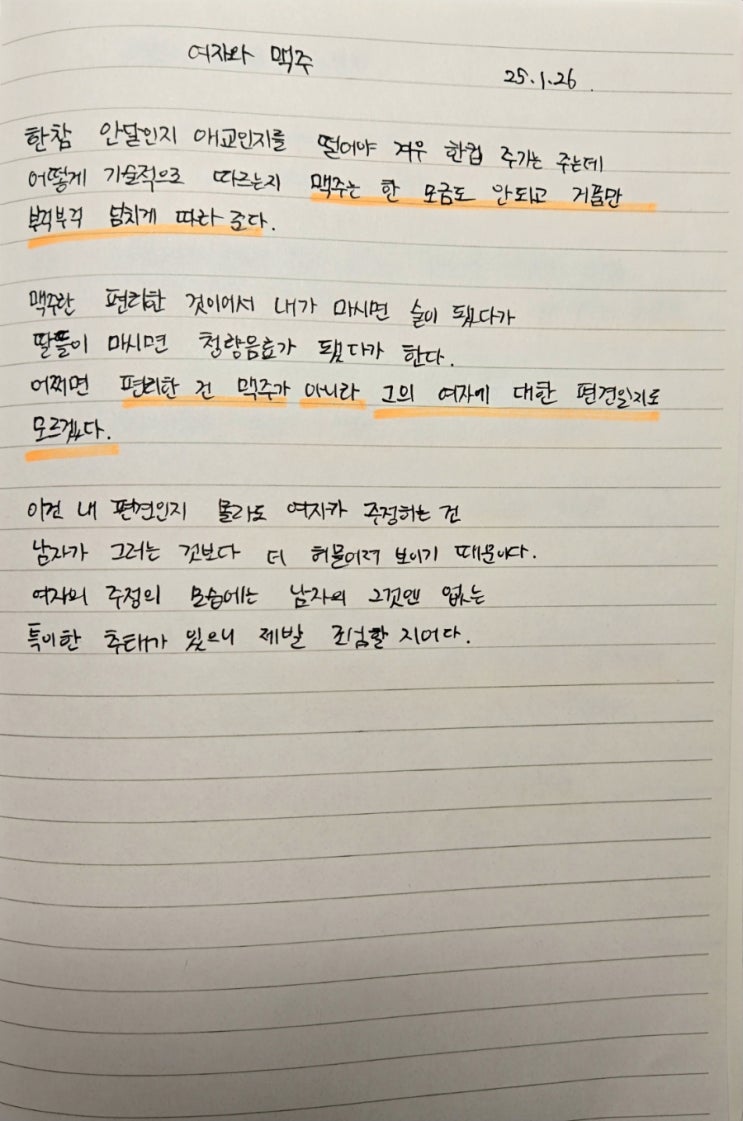 여자와 맥주
25.1.26.
한참 안달인지 애교인지를 떨어야 겨우 한컵 주기는 주는데
어떻게 기술적으로 따르는지 맥주는 한 모금도 안되고 거품만
부걱부걱 넘치게 따라 준다.
맥주란 편리한 것이어서 내가 마시면 술이 됐다가
딸들이 마시면 청량음료가 됐다가 한다.
어쩌면 편리한 건 맥주가 아니라 그의 여자에 대한 편견일지도
모르겠다.
이건 내 편견인지 몰라도 여자가 주정하는 건
남자가 그러는 것보다 더 허물어져 보이기 때문이다.
여자의 주정의 모습에는 남자의 그것엔 없는
특이한 추태가 있으니 제발 조심할 지어다.